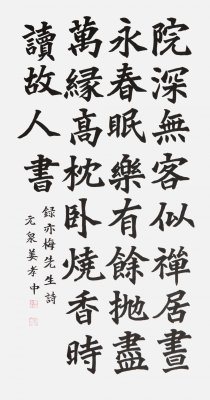 院深無客似禪居晝
永春眠樂有餘拋盡
萬緣高枕卧燒香時
讀故人書
錄亦梅先生詩
元泉姜孝中